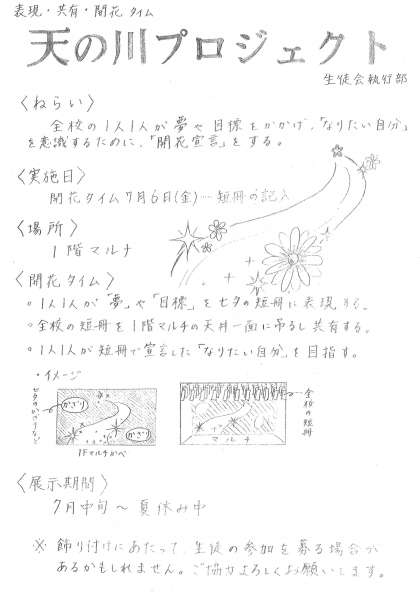 表現・共有・開花タイム
天の川プロジェクト
生徒会執行部
〈ねらい〉
全校の1人1人が夢や目標をかかげ、「なりたい自分」
を意識するために、「開花宣言」をする。
〈実施日〉
開花タイム7月6日(金)…短冊の記入
〈場所〉
1階マルチ
〈開花タイム〉
○1人1人が「夢」や「目標」を七夕の短冊に表現する。
○全校の短冊を1階マルチの天井一面に吊るし共有する。
○1人1人が短冊で宣言した「なりたい自分」を目指す。
・イメージ
七夕のかざりなど
かざり
かざり
1Fマルチかべ
マルチ
全校の短冊
〈展示期間〉
7月中旬〜夏休み中
※飾り付けにあたって、生徒の参加を募る場合が
あるかもしれません。ご協力よろしくお願いします。